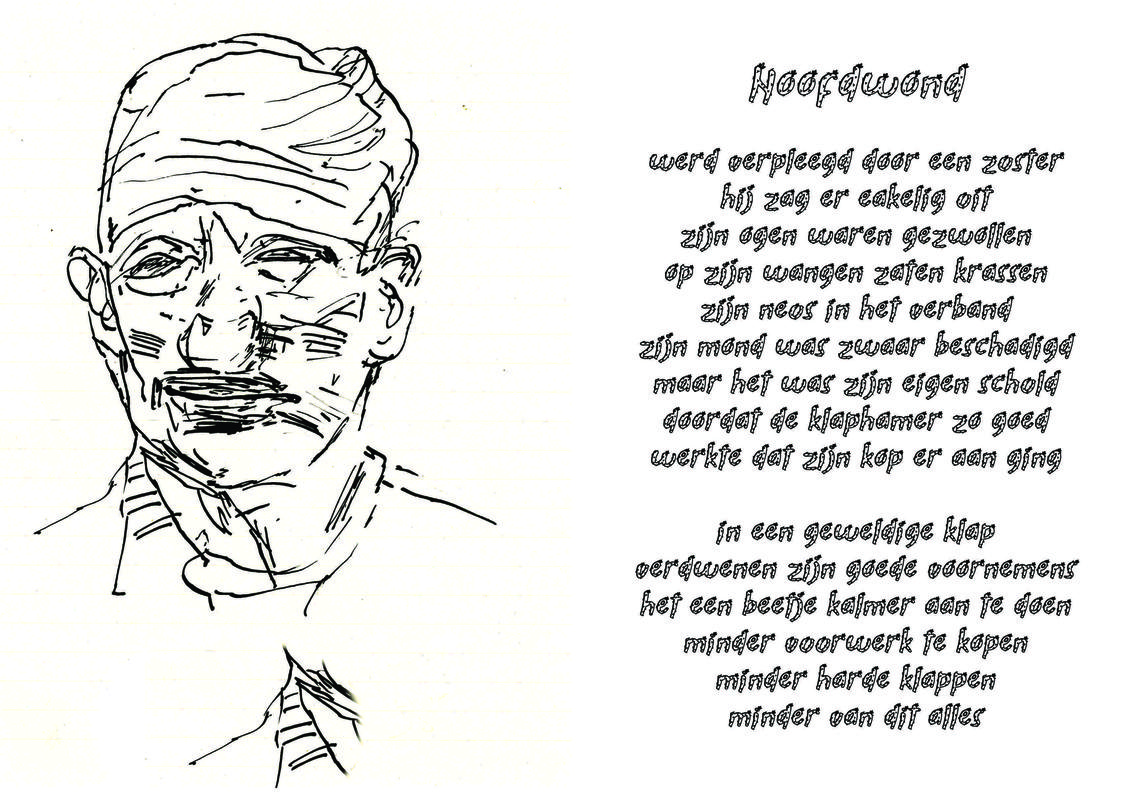 Hoofdwond
werd verpleegd door een zuster
hij zag er eakelig uit
zijn ogen waren gezwollen
op zijn wangen zaten krassen
zijn neus in het verband
zijn mond was zwaar beschadigd
maar het was zijn eigen schuld
doordat de klaphamer zo goed
werkte dat zijn kop er aan ging
in een geweldige klap
verdwenen zijn goede voornemens
het een beetje kalmer aan te doen
minder vuurwerk te kopen
minder harde klappen
minder van dit alles